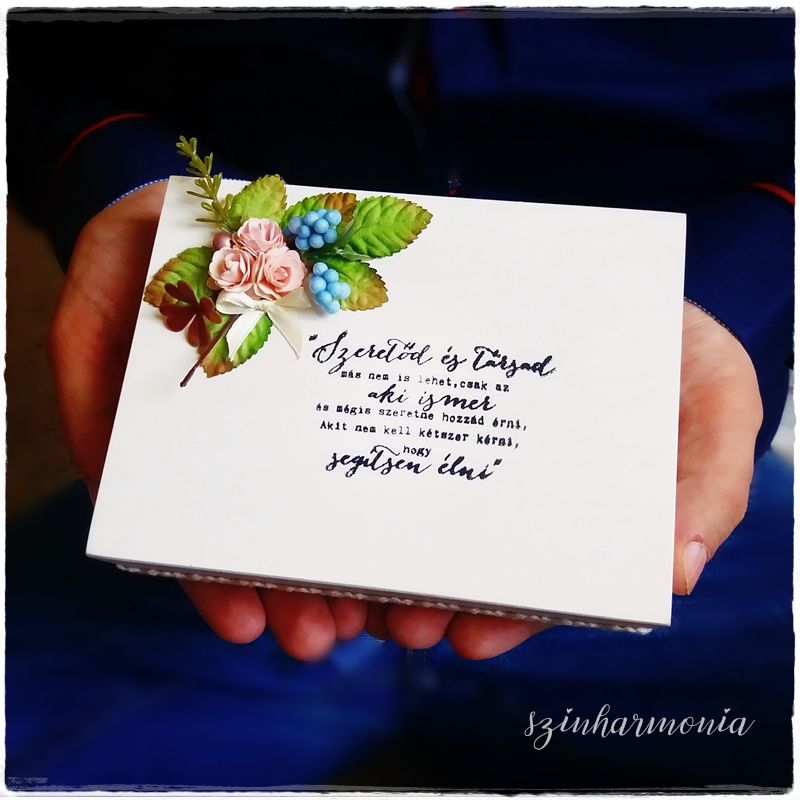 "Szeretőd és Társad
más nem is lehet,csak az
aki ismer
és mégis szeretne hozzád érni,
Akit nem kell kétszer kérni,
hogy
segítsen élni"
szinharmonia